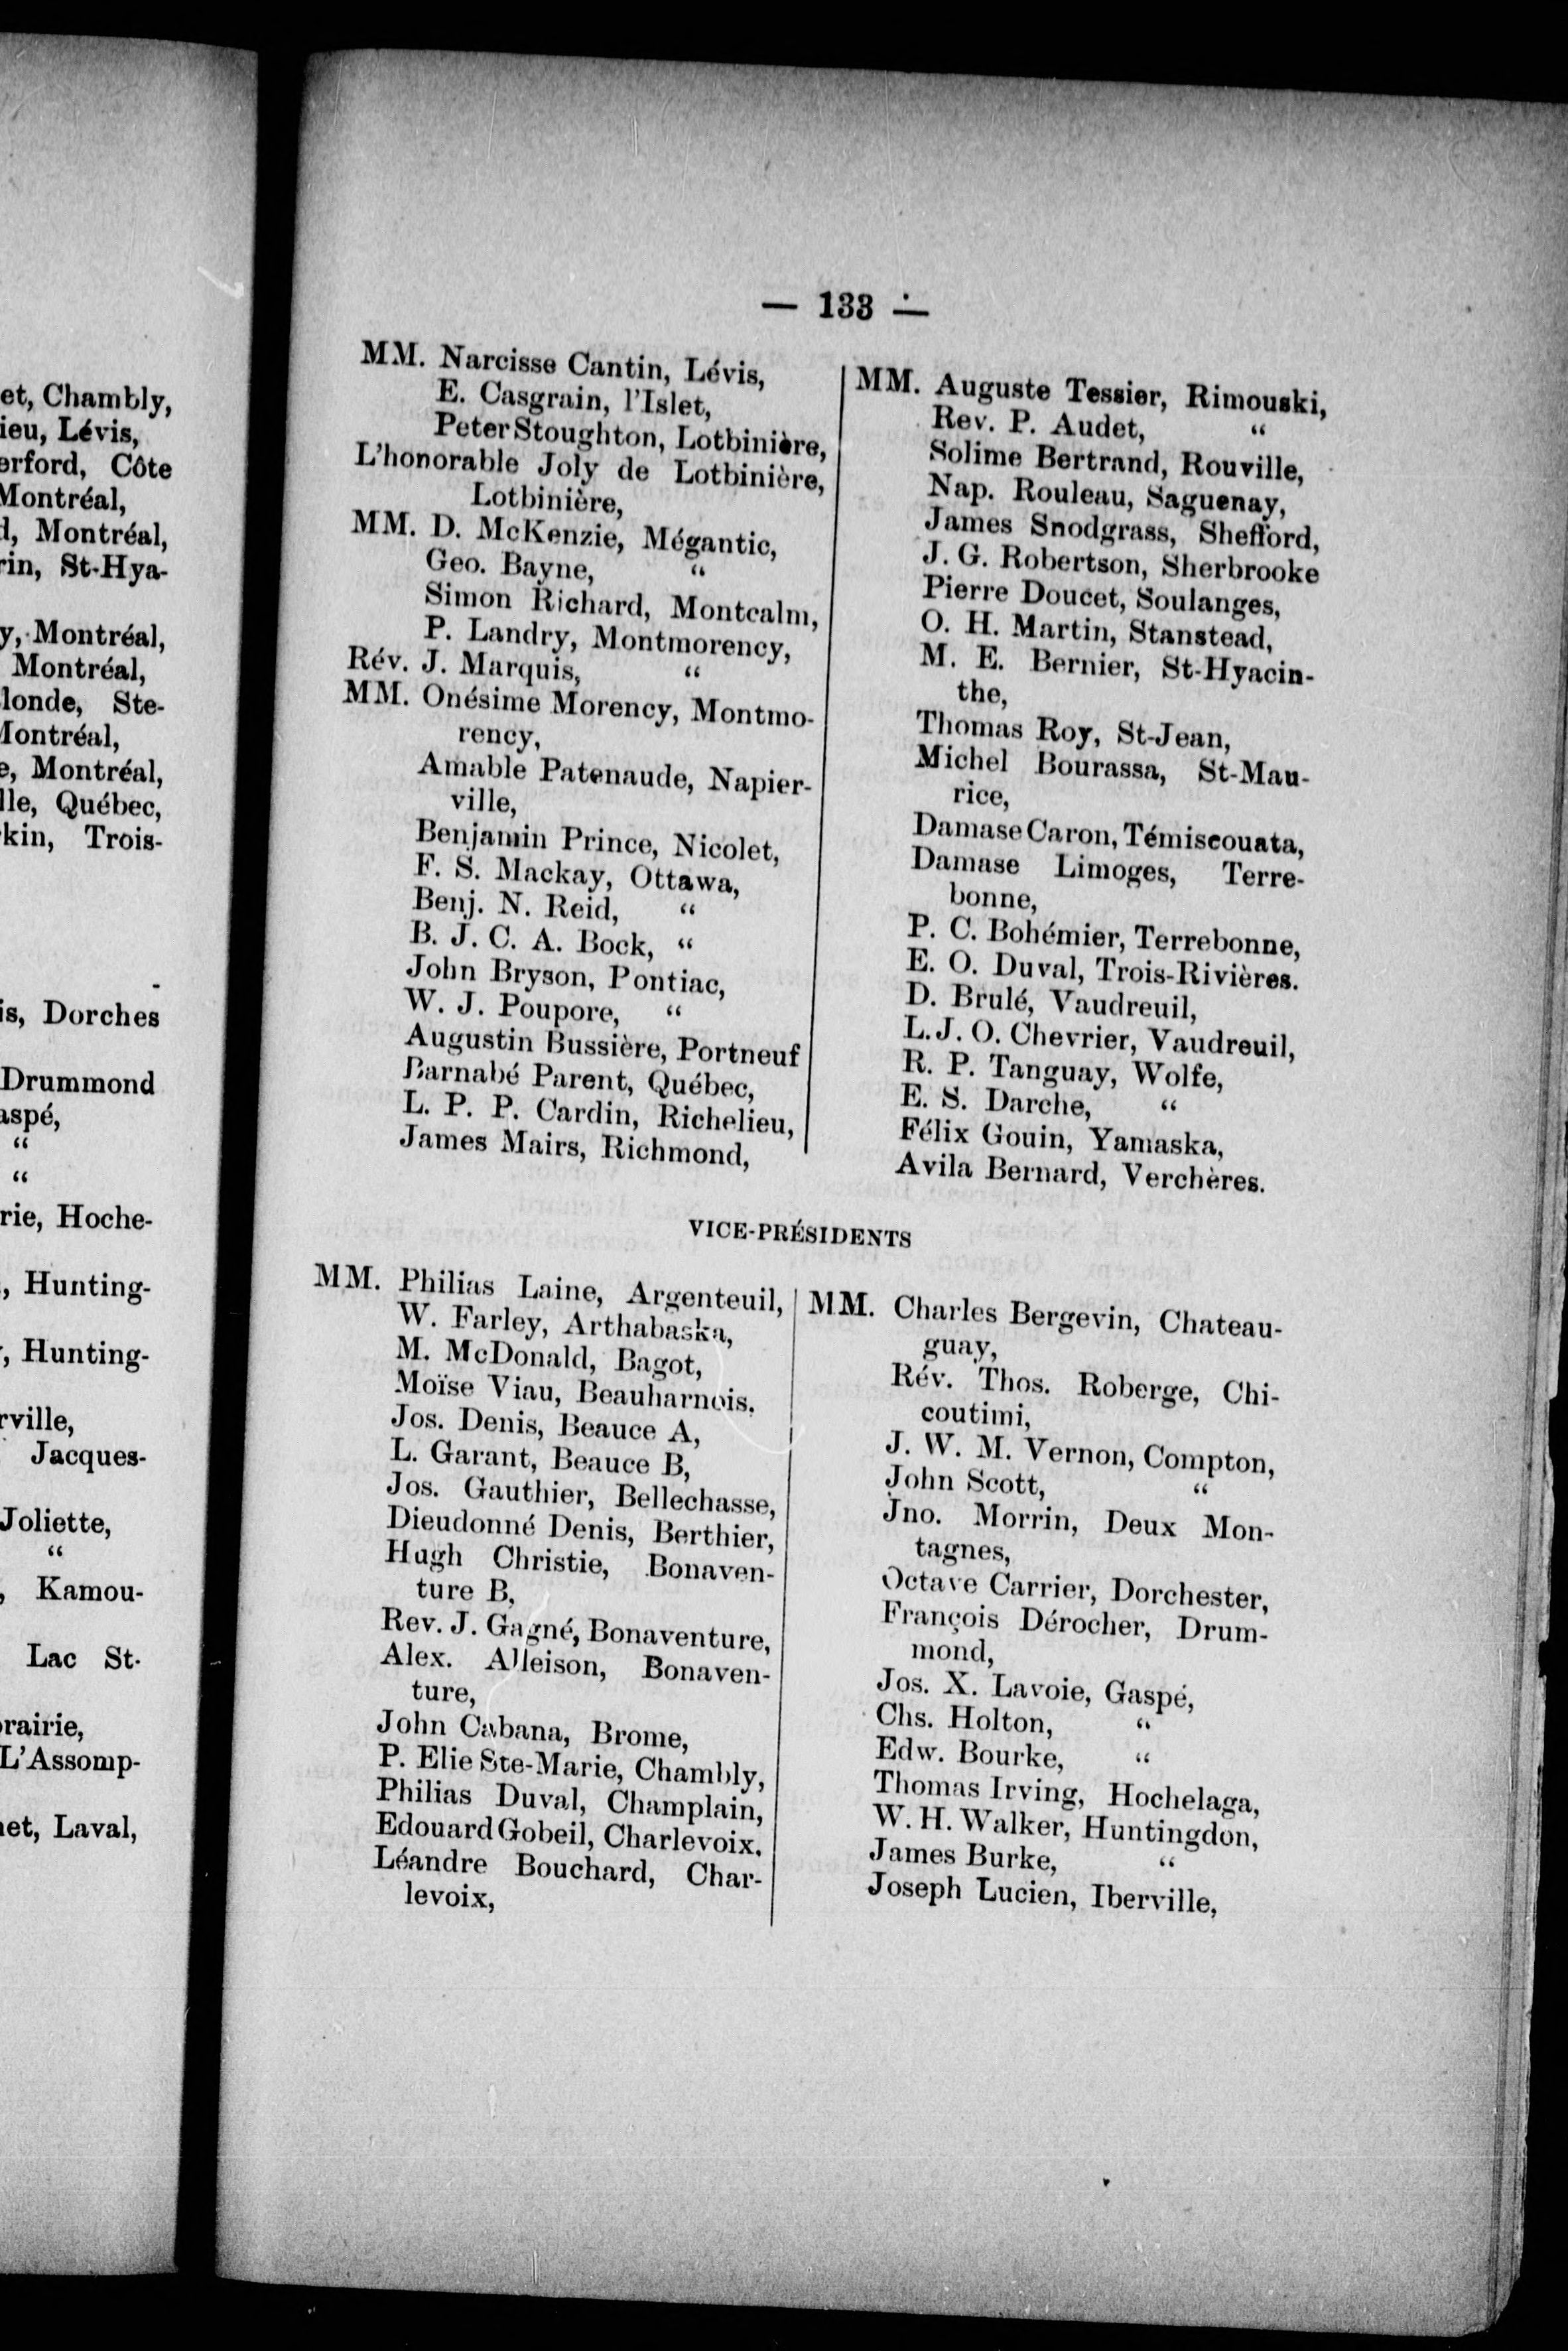 et, Chambly,
ieu, Lévis,
erford, Côte
Montréal,
d, Montréal,
rin, St-Hya-
y, Montréal,
Montréal,
londe, Ste-
Montréal,
e, Montréal,
lle, Québec,
kin, Trois-
is, Dorches
Drummond
aspé,
“
“
rie, Hoche-
, Hunting-
, Hunting-
rville,
Jacques-
Joliette,
“
, Kamou-
Lac St-
rairie,
L'Assomp-
et, Laval,
— 133 —
MM. Narcisse Cantin, Lévis,
E. Casgrain, l'Islet,
Peter Stoughton, Lotbinière,
L'honorable Joly de Lotbinière,
Lotbinière,
MM. D. McKenzie, Mégantic,
Geo. Bayne, “
Simon Richard, Montcalm,
P. Landry, Montmorency,
Rév. J. Marquis, “
MM. Onésime Morency, Montmo-
rency,
Amable Patenaude, Napier-
ville,
Benjamin Prince, Nicolet,
F. S. Mackay, Ottawa,
Benj. N. Reid, “
B. J. C. A. Bock, “
John Bryson, Pontiac,
W. J. Poupore, “
Augustin Bussière, Portneuf
Barnabé Parent, Québec,
L. P. P. Cardin, Richelieu,
James Mairs, Richmond,
MM. Auguste Tessier, Rimouski,
Rev. P. Audet, “
Solime Bertrand, Rouville,
Nap. Rouleau, Saguenay,
James Snodgrass, Shefford,
J. G. Robertson, Sherbrooke
Pierre Doucet, Soulanges,
O. H. Martin, Stanstead,
M. E. Bernier, St-Hyacin-
the,
Thomas Roy, St-Jean,
Michel Bourassa, St-Mau-
rice,
Damase Caron, Témiscouata,
Damase Limoges, Terre-
bonne,
P. C. Bohémier, Terrebonne,
E. O. Duval, Trois-Rivières.
D. Brulé, Vaudreuil,
L. J. O. Chevrier, Vaudreuil,
R. P. Tanguay, Wolfe,
E. S. Darche, “
Félix Gouin, Yamaska,
Avila Bernard, Verchères.
VICE-PRÉSIDENTS
MM. Philias Laine, Argenteuil,
W. Farley, Arthabaska,
M. McDonald, Bagot,
Moïse Viau, Beauharnois.
Jos. Denis, Beauce A,
L. Garant, Beauce B,
Jos. Gauthier, Bellechasse,
Dieudonné Denis, Berthier,
Hugh Christie, Bonaven-
ture B,
Rev. J. Gagné, Bonaventure,
Alex. Alleison, Bonaven-
ture,
John Cabana, Brome,
P. Elie Ste-Marie, Chambly,
Philias Duval, Champlain,
Edouard Gobeil, Charlevoix.
Léandre Bouchard, Char-
levoix,
MM. Charles Bergevin, Chateau-
guay,
Rév. Thos. Roberge, Chi-
coutimi,
J. W. M. Vernon, Compton,
John Scott, “
Jno. Morrin, Deux Mon-
tagnes,
Octave Carrier, Dorchester,
François Dérocher, Drum-
mond,
Jos. X. Lavoie, Gaspé,
Chs. Holton, “
Edw. Bourke, “
Thomas Irving, Hochelaga,
W. H. Walker, Huntingdon,
James Burke, “
Joseph Lucien, Iberville,